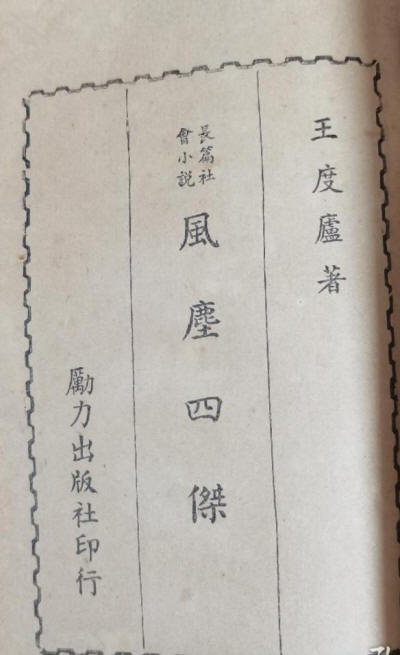 王度廬著
長篇社
會小說
風塵四傑
勵力出版社印行